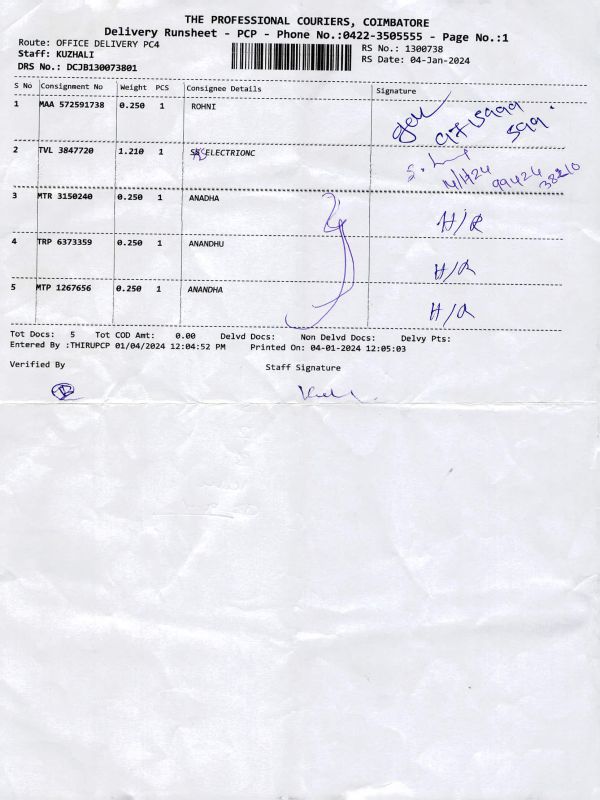 THE PROFESSIONAL COURIERS, COIMBATORE
Delivery Runsheet - PCP - Phone No.:0422-3505555 - Page No.:1
Route: OFFICE DELIVERY PC4
RS No.: 1300738
Staff: KUZHALI
RS Date: 04-Jan-2024
DRS No.: DCJB130073801
S No Consignment No Weight PCS Consignee Details Signature
1 MAA 572591738 0.250 1 ROHNI
2 TVL 3847720 1.210 1 ELECTRIONC
14/1/24 99424
38210
3 MTR 3150240 0.250 1 ANADHA H/R
4 TRP 6373359 0.250 1 ANANDHU H/R
5 MTP 1267656 0.250 1 ANANDHA H/R
Tot Docs: 5 Tot COD Amt: 0.00 Delvd Docs: Non Delvd Docs: Delvy Pts:
Entered By :THIRUPCP 01/04/2024 12:04:52 PM Printed On: 04-01-2024 12:05:03
Verified By Staff Signature